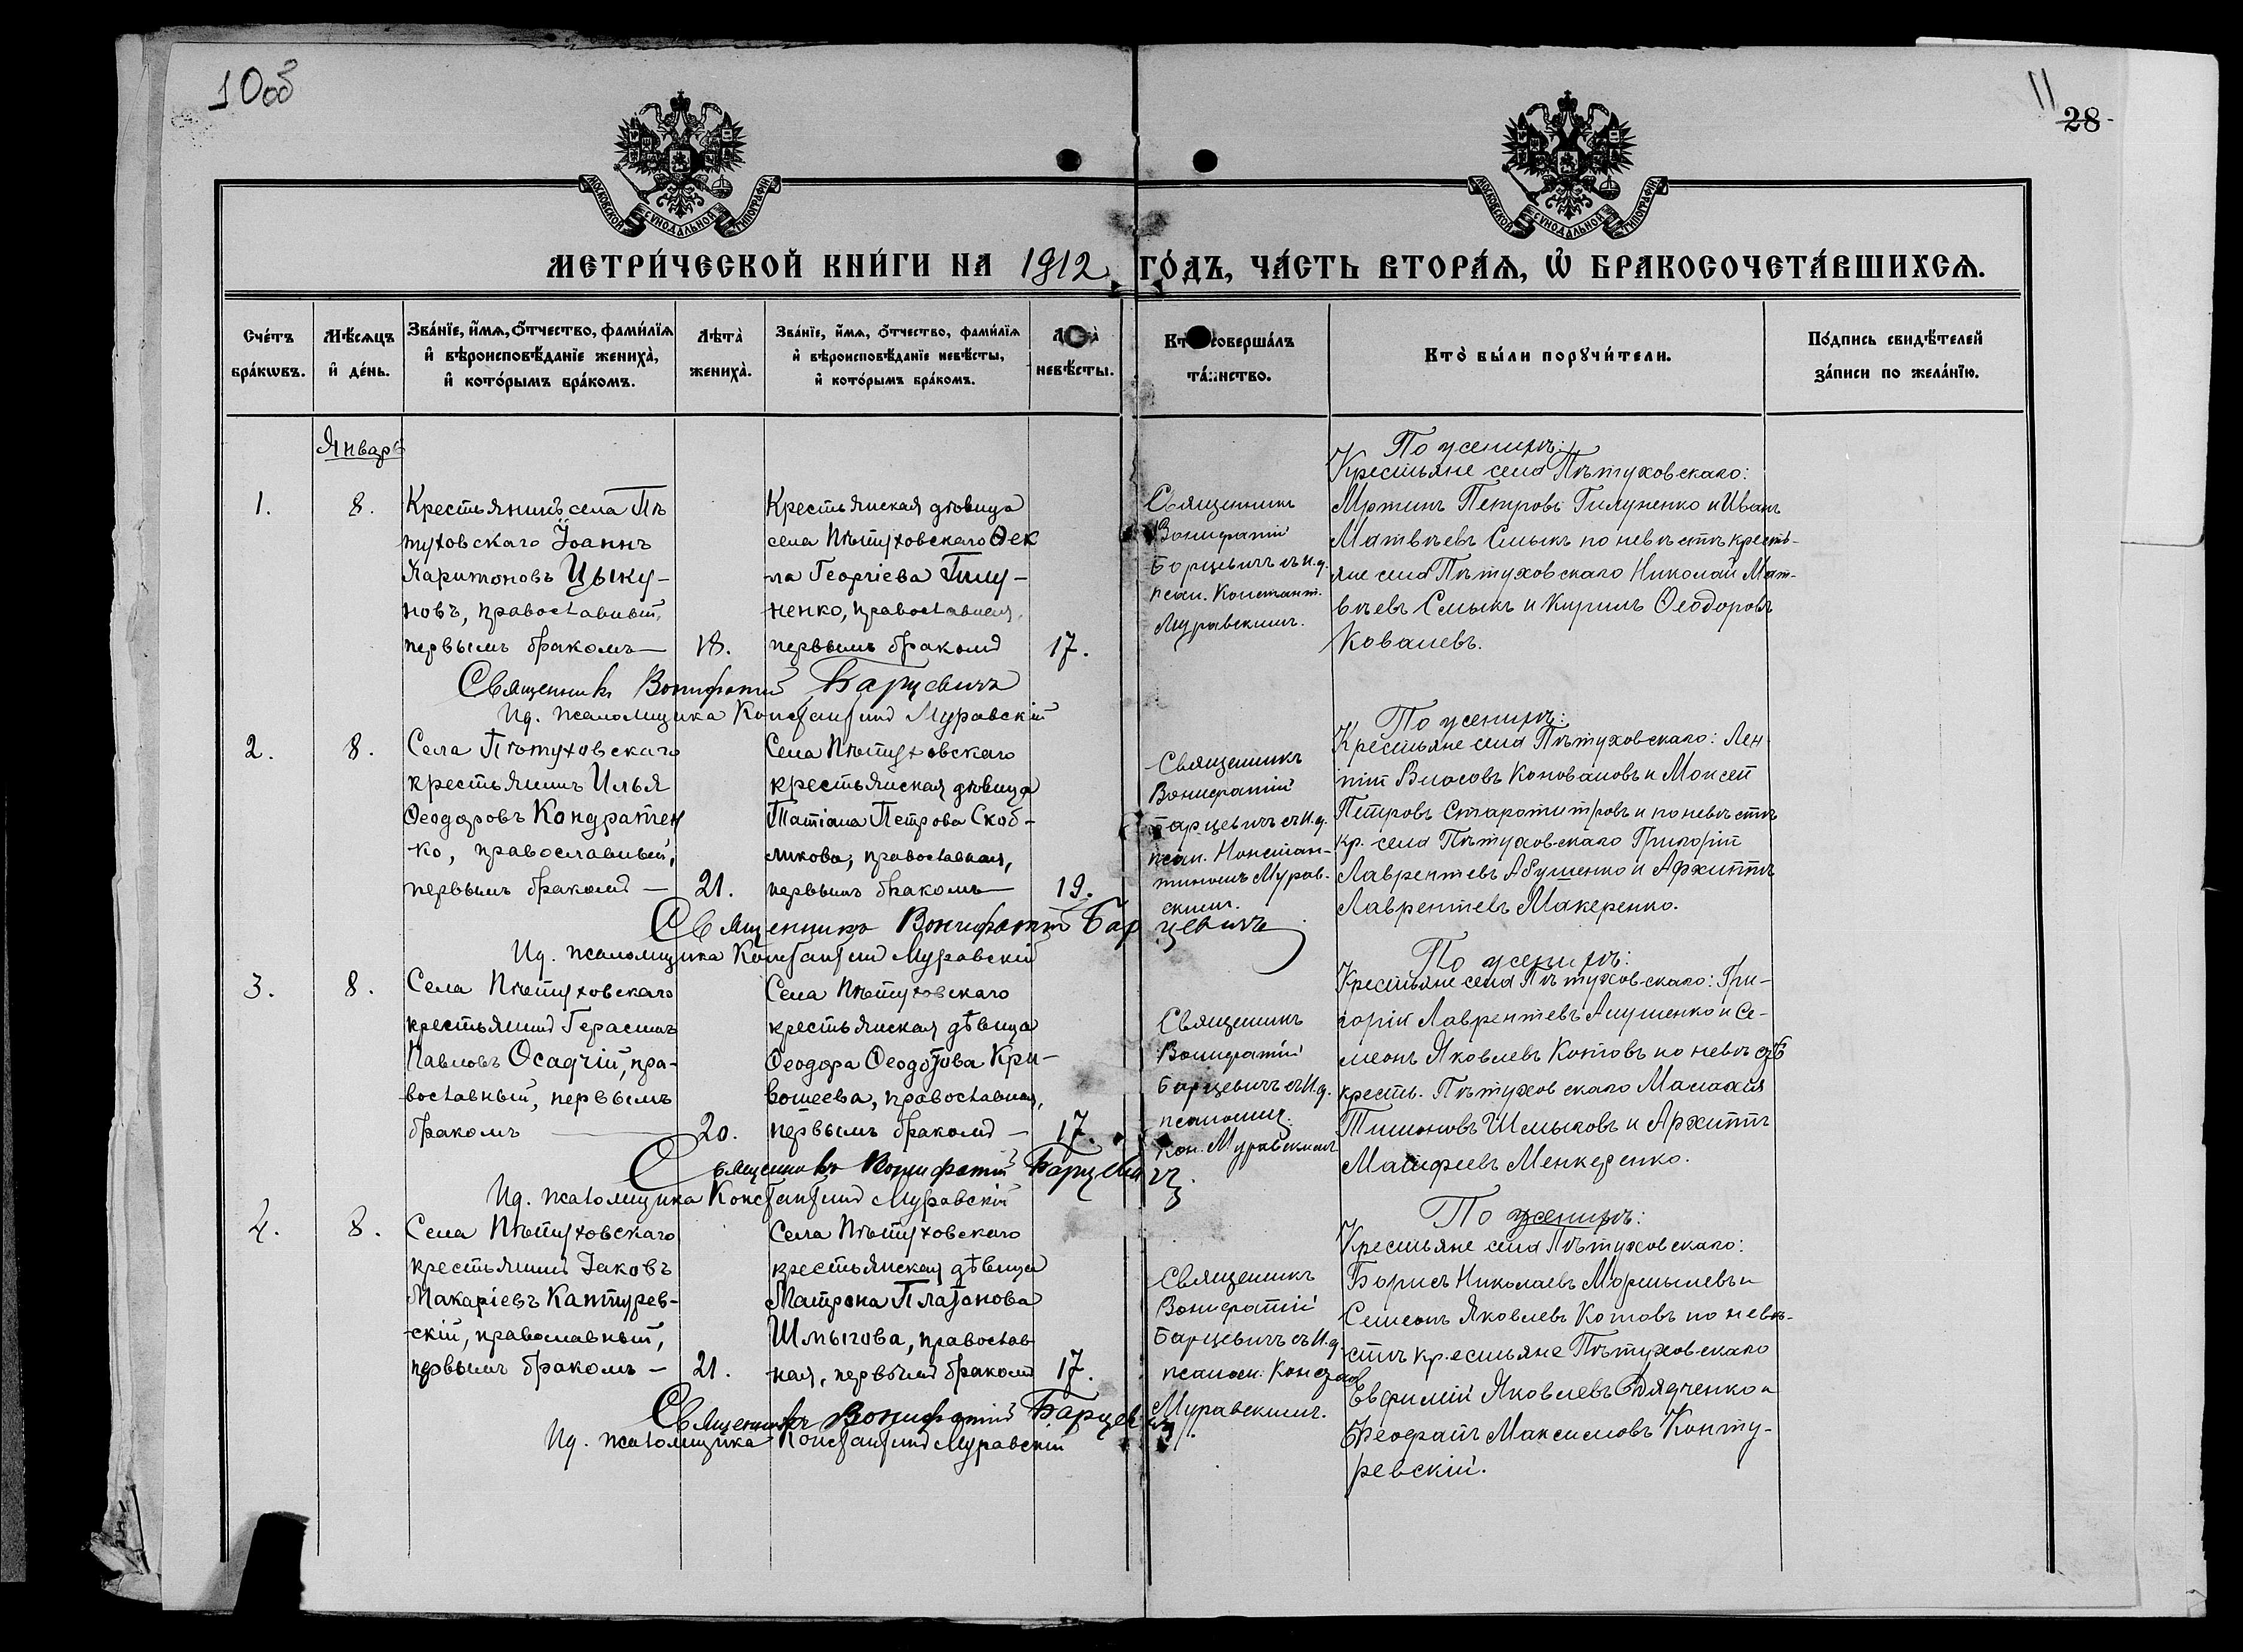 10об
11
28
МОСКОВСКОЙ СѴНОДАЛЬНОЙ ТИПОГРАФІИ
МОСКОВСКОЙ СѴНОДАЛЬНОЙ ТИПОГРАФІИ
МЕТРИ́ЧЕСКОЙ КНИ́ГИ НА 1912 ГО́ДЪ, ЧА́СТЬ ВТОРА́Я, Ѡ҆ БРАКОСОЧЕТА́ВШИХСЯ.
Сче́тъ
бра́кѡвъ.
Мѣ́сяцъ
и҆ де́нь.
Зва́нїе, и҆́мя, ѻ҆́тчество, фами́лїя
и҆ вѣроисповѣ́данїе жениха̀,
и҆ кото́рымъ бра́комъ.
Лѣта̀
жениха̀.
Зва́нїе, и҆́мя, ѻ҆́тчество, фами́лїя
и҆ вѣроисповѣ́данїе невѣ́сты,
и҆ кото́рымъ бра́комъ.
невѣ́сты.
соверша́лъ
та́инство.
Кто̀ бы́ли порꙋчи́тели.
По́дпись свидѣ́телей
за́писи по жела́нїю.
Январь
1.
8.
Крестьянинъ села Пѣ
туховскаго Іоаннъ
Харитоновъ Цыку-
новъ, православный,
первымъ бракомъ —
18.
Крестьянская дѣвица
села Пѣтуховскаго Ѳек
ла Георгіева Гилу-
ненко, православная,
первымъ бракомъ
17.
Священникъ
Вонифатій
Барцевичъ съ И.д.
псал. Констант.
Муравскимъ.
По женихѣ:
Крестьяне села Пѣтуховскаго:
Мртинъ Петровъ Гилуненко и Иванъ
Матвѣевъ Смыкъ по невѣстѣ кресть-
яне села Пѣтуховскаго Николай Мат-
вѣевъ Смыкъ и Кирилъ Ѳеодоровъ
Ковалевъ.
Священникъ Вонифатій Барцевичъ
Ид. псаломщика Константинъ Муравскій
2.
8.
Села Пѣтуховскаго
крестьянинъ Илья
Ѳеодоровъ Кондратен
ко, православный,
первымъ бракомъ —
21.
Села Пѣтуховскаго
крестьянская дѣвица
Татіана Петрова Скоб-
ликова, православная,
первымъ бракомъ —
19.
Священникъ
Вонифатій
Барцевичъ съ И.д.
псал. Констан-
тиномъ Мурав-
скимъ.
По женихѣ:
Крестьяне села Пѣтуховскаго:
Власовъ Коноваловъ и Моисей
Петровъ и по невѣстѣ
кр. села Пѣтуховскаго Григорій
Лаврентіевъ и
Лаврентіевъ Макеренко.
Священникъ Вонифатій Барцевичъ
Ид. псаломщика Константинъ Муравскій
3.
8.
Села Пѣтуховскаго
крестьянинъ Герасимъ
Павловъ Осадчій, пра-
вославный, первымъ
бракомъ —
20.
Села Пѣтуховскаго
крестьянская дѣвица
Ѳеодора Ѳеодорова Кри-
вошеева, православная,
первымъ бракомъ —
17.
Священникъ
Вонифатій
Барцевичъ съ И.д.
псаломщ.
Кон. Муравскимъ
По женихѣ:
Крестьяне села Пѣтуховскаго: Гри-
горій Лаврентіевъ и Се-
меонъ Яковлевъ Котовъ по невѣстѣ
кресть. Пѣтуховскаго Малахія
Тимоновъ Шмыговъ и
Матфеевъ
Священникъ Вонифатій Барцевичъ
Ид. псаломщика Константинъ Муравскій
4.
8.
Села Пѣтуховскаго
крестьянинъ Іаковъ
Макаріевъ Кантурев-
скій, православный,
первымъ бракомъ —
21.
Села Пѣтуховскаго
крестьянская дѣвица
Матрона Платонова
Шмыгова, православ
ная, первымъ бракомъ
17.
Священникъ
Вонифатій
Барцевичъ съ И.д.
псалом.
Муравскимъ.
По женихѣ:
Крестьяне села Пѣтуховскаго:
Борисъ Николаевъ и
Семеонъ Яковлевъ Котовъ по невѣ-
стѣ крестьяне Пѣтуховскаго
Евфимій Яковлевъ и
Ѳеофанъ Максимовъ Конту-
ревскій.
Священникъ Вонифатій Барцевичъ
Ид. псаломщика Константинъ Муравскій